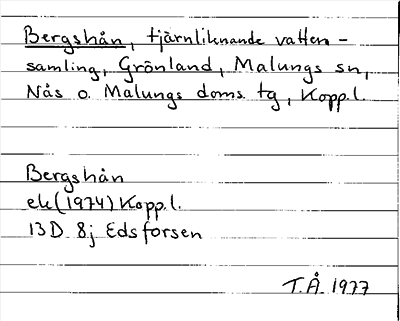 Bergshån, tjärnliknande vatten-
samling, Grönland, Malungs sn,
Nås o. Malungs doms. tg, Kopp.l.
Bergshån
ek (1974) Kopp.l.
13D 8j Edsforsen
T.Å. 1977